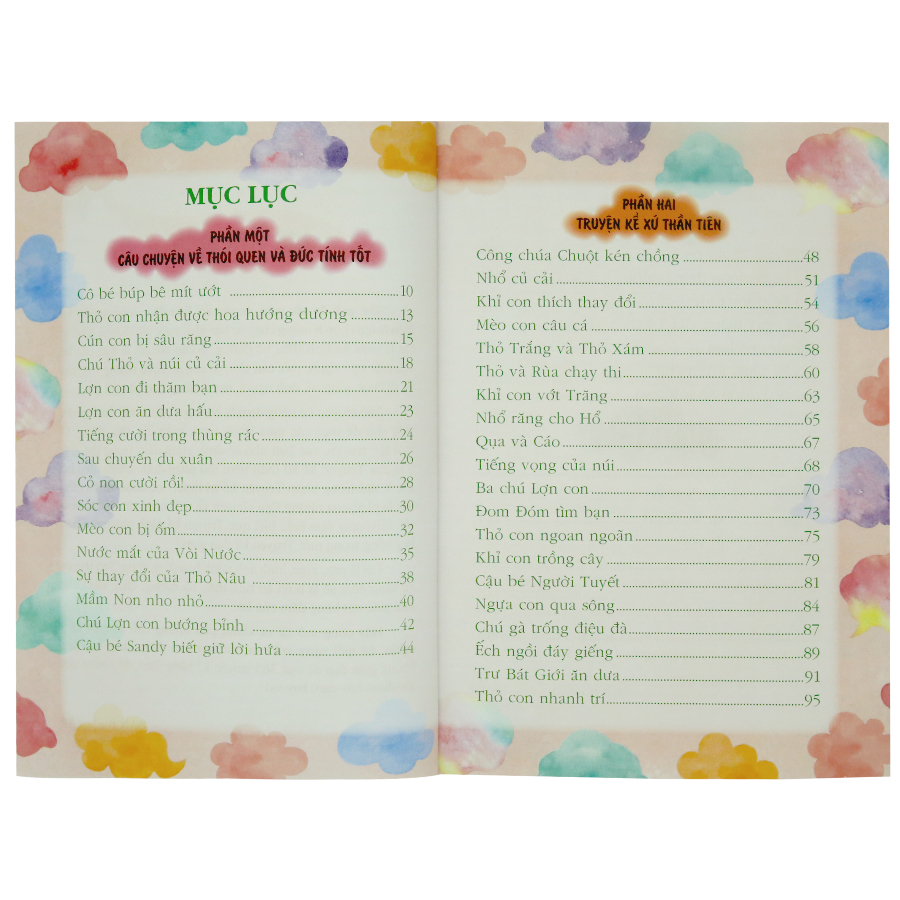 MỤC LỤC
PHẦN MỘT
CÂU CHUYỆN VỀ THÓI QUEN VÀ ĐỨC TÍNH TỐT
Cô bé búp bê mít ướt ........ 10
Thỏ con nhận được hoa hướng dương ........ 13
Cún con bị sâu răng ........ 15
Chú Thỏ và núi củ cải ........ 18
Lợn con đi thăm bạn ........ 21
Lợn con ăn dưa hấu ........ 23
Tiếng cười trong thùng rác ........ 24
Sau chuyến du xuân ........ 26
Cỏ non cười rồi! ........ 28
Sóc con xinh đẹp ........ 30
Mèo con bị ốm ........ 32
Nước mắt của Vòi Nước ........ 35
Sự thay đổi của Thỏ Nâu ........ 38
Mầm Non nho nhỏ ........ 40
Chú Lợn con bướng bỉnh ........ 42
Cậu bé Sandy biết giữ lời hứa ........ 44
PHẦN HAI
TRUYỆN KỂ XỨ THẦN TIÊN
Công chúa Chuột kén chồng ........ 48
Nhổ củ cải ........ 51
Khỉ con thích thay đổi ........ 54
Mèo con câu cá ........ 56
Thỏ Trắng và Thỏ Xám ........ 58
Thỏ và Rùa chạy thi ........ 60
Khỉ con vớt Trăng ........ 63
Nhổ răng cho Hổ ........ 65
Quạ và Cáo ........ 67
Tiếng vọng của núi ........ 68
Ba chú Lợn con ........ 70
Đom Đóm tìm bạn ........ 73
Thỏ con ngoan ngoãn ........ 75
Khỉ con trồng cây ........ 79
Cậu bé Người Tuyết ........ 81
Ngựa con qua sông ........ 84
Chú gà trống điệu đà ........ 87
Ếch ngồi đáy giếng ........ 89
Trư Bát Giới ăn dưa ........ 91
Thỏ con nhanh trí ........ 95